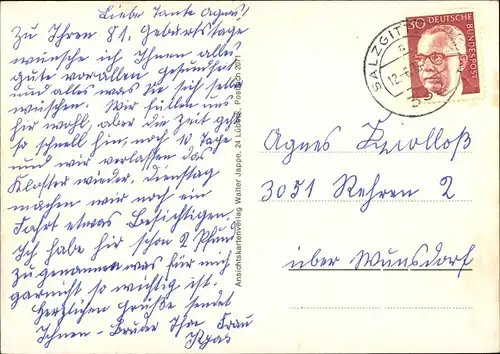 Liebe Tante Agnes!
Zu Ihren 81. Geburtstage
wünsche ich Ihnen alles
gute vorallen gesundheit
und alles was Sie sich selbst
wüschen. Wir fühlen uns
hir wohl, aber die Zeit geht
so schnell hin, noch 10 Tage
und wir verlassen das
Kloster wieder. Dienstag
machen wir noch ein
Fahrt etwas Besichtigen.
Ich habe hir schon 2 Pfund
zugenommen was für mich
garnicht so wichtig ist.
Herzlichen Grüße sendet
Ihnen - Ihre Frau
Ansichtskartenverlag Walter Jappe, 24 Lübeck, Postfach 207
SALZGITT
30 DEUTSCHE
BUNDESPOST
Agnes
3051 Rehren 2
über Wunsdorf